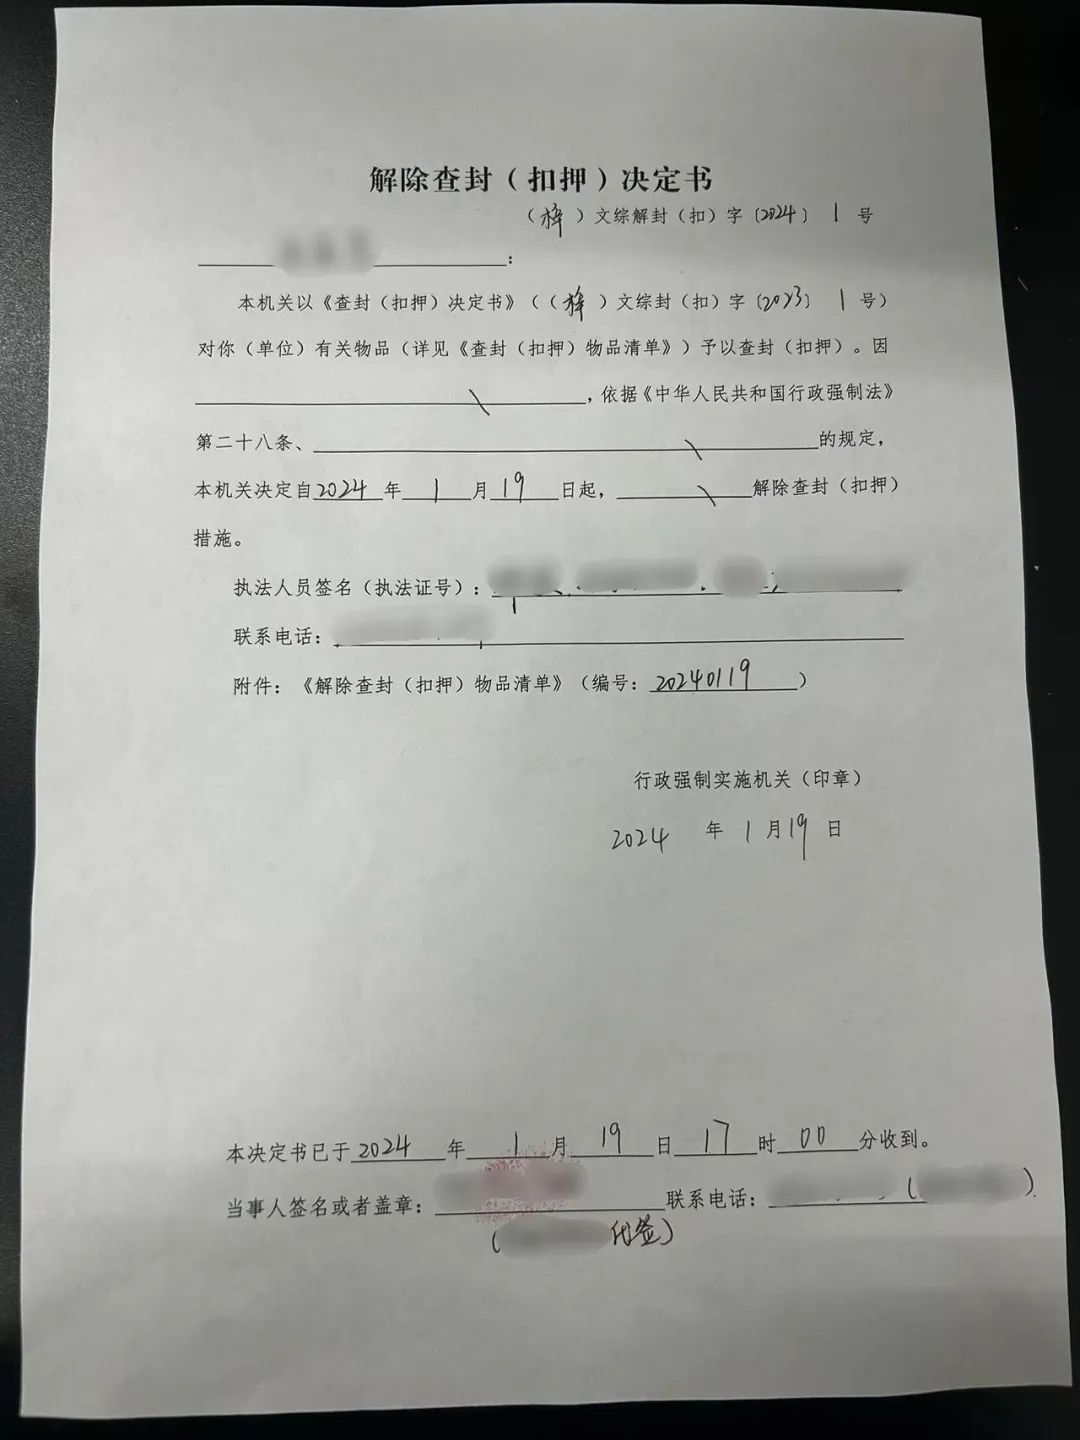 解除查封（扣押）决定书
（梓）文综解封（扣）字〔2024〕 1 号
：
本机关以《查封（扣押）决定书》（（梓）文综封（扣）字〔2023〕 1 号）
对你（单位）有关物品（详见《查封（扣押）物品清单》）予以查封（扣押）。因
\，依据《中华人民共和国行政强制法》
第二十八条、\的规定，
本机关决定自2024年1月19日起，\解除查封（扣押）
措施。
执法人员签名（执法证号）：
联系电话：
附件：《解除查封（扣押）物品清单》（编号：20240119）
行政强制实施机关（印章）
2024 年 1 月 19 日
本决定书已于2024年1月19日17时00分收到。
当事人签名或者盖章： 联系电话： （ ）
（ 代签）